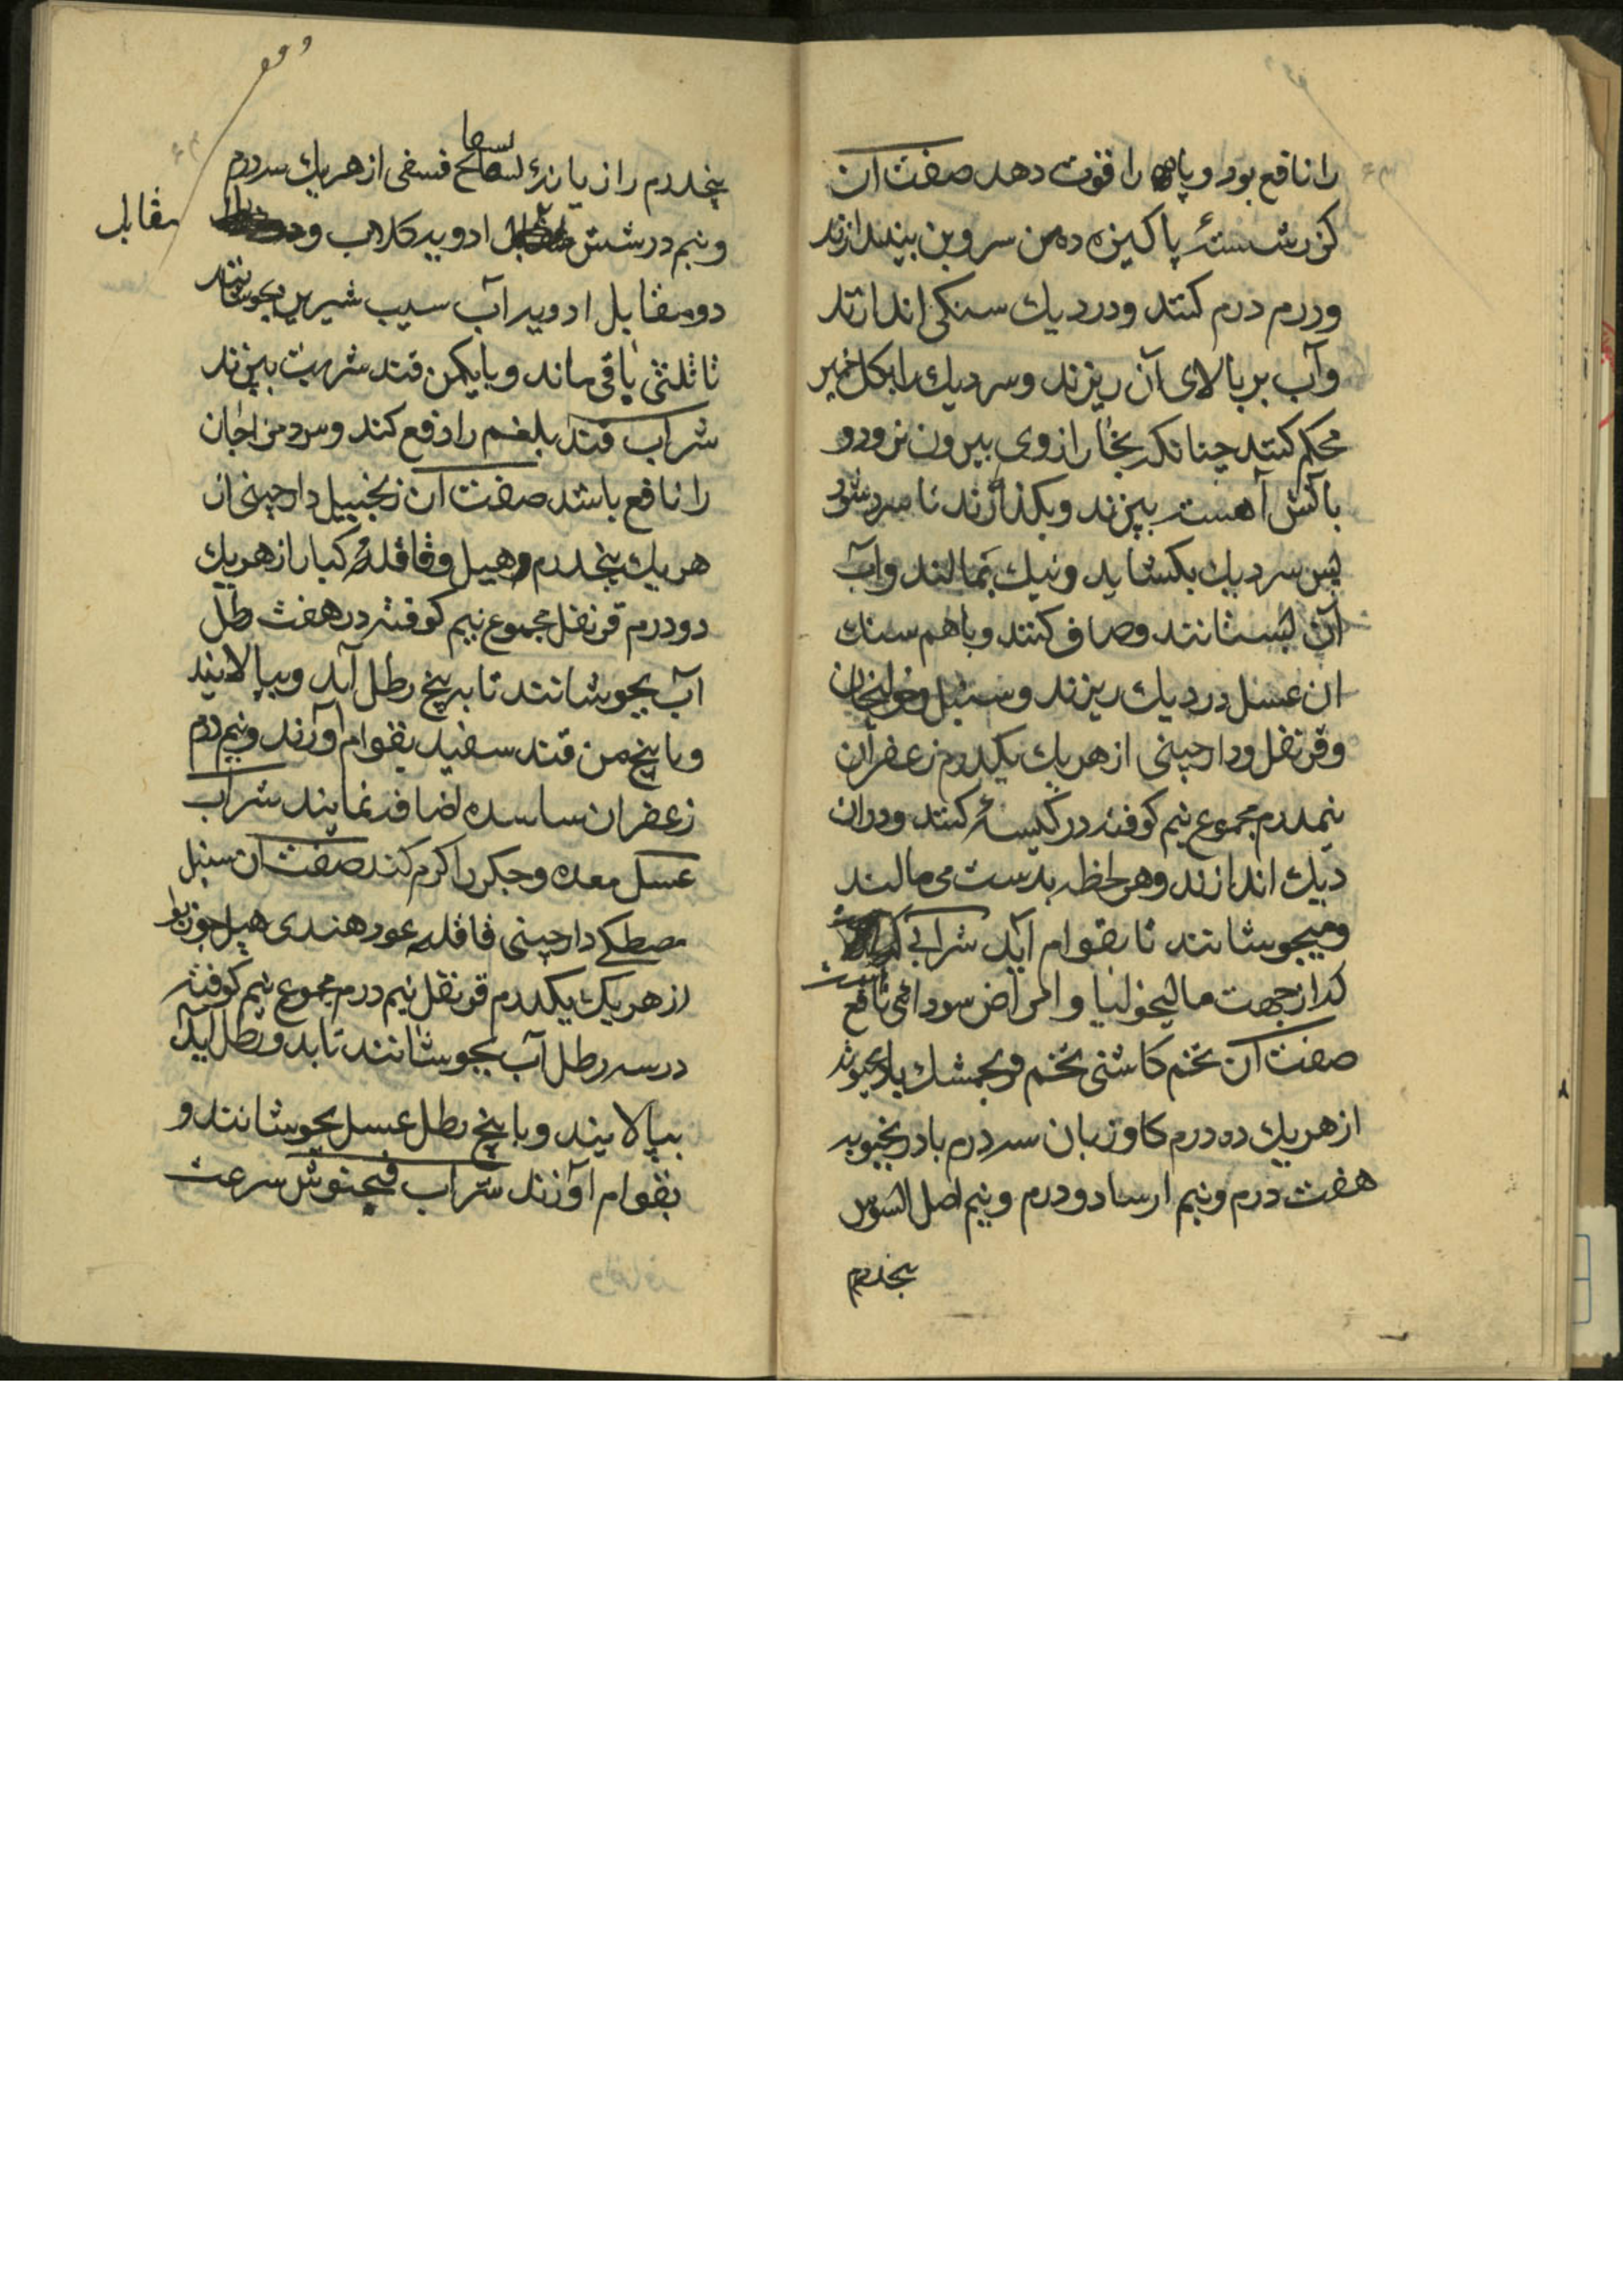 را نافع بود و باه را قوت دهد صفت آن
کزر شسته پاکیزه ده من سر و بن بیندازند
و درم درم کنند و در دیك سنکی اندازند
و آب بر بالای آن ریزند و سر دیك را بکل خمیر
محکم کنند چنانکه بخار از وی بیرون نرود و
باتش آهسته بپزند و بکذارند تا سرد شود
پس سر دیك بکشاید و نیك بمالند و آب
آن بستانند و صاف کنند و با هم سنك
ان عسل در دیك ریزند و سنبل و خولنجان
و قرنفل و دارچینی از هر یك یکدرم زعفران
نیمدرم مجموع نیم کوفته در کیسهٔ کنند و در ان
دیك اندازند و هر لحظه بدست می مالند
و میجوشانند تا بقوام آید شرابی
که از جهت مالیخولیا و امراض سودائی نافع است
صفت آن تخم کاسنی تخم فرنجمشك بادرنجبویه
از هر یك ده درم کاوزبان سه درم بادرنجبویه
هفت درم و نیم ارسا دو درم و نیم اصل السوس
پنجدرم
پنجدرم رازیانه بسفایج فسقی از هر یك سه درم
و نیم در شش مقابل ادویه کلاب و در
مقابل
دو مقابل ادویه آب سیب شیرین بجوشانند
تا ثلثی باقی ماند و با یکمن قند شربت بپزند
شراب قند بلغم را دفع کند و سرد مزاجان
را نافع باشد صفت آن زنجبیل دارچینی از
هر یك پنجدرم و هیل و قاقله کبار از هر یك
دو درم قرنفل مجموع نیم کوفته در هفت رطل
آب بجوشانند تا به پنج رطل آید و بپالایند
و با پنج من قند سفید بقوام آورند و نیم درم
زعفران ساسده اضافه نمایند شراب
عسل معده و جکر را کرم کند صفت آن سنبل
مصطکی دارچینی قاقله عود هندی هیل جوز بوا
از هر یك یکدرم قرنفل نیم درم مجموع نیم کوفته
در سه رطل آب بجوشانند تا بدو رطل آید
بپالایند و با پنج رطل عسل بجوشانند و
بقوام آورند شراب فنجنوش سرعت